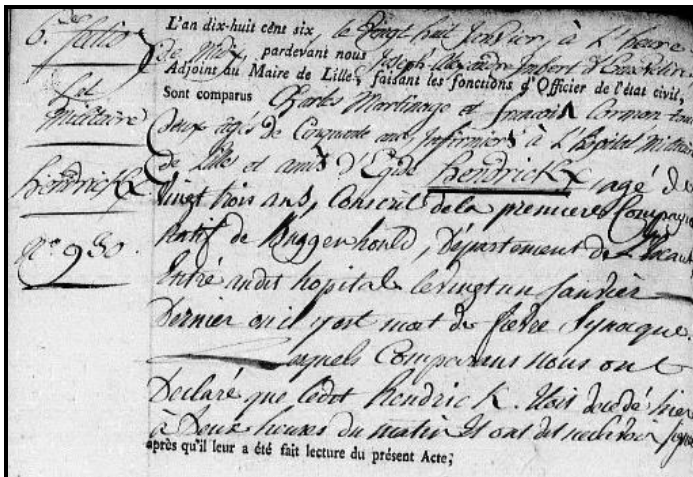 6.des fallio
fal
militaire
hendrickx
N.o 930.
L'an dix-huit cent six, le Vingt huit Janvier, à L'heure
de Midy, pardevant nous Joseph Alexandre Imbert D'
Adjoint au Maire de Lille, faisant les fonctions d'Officier de l'état civil,
Sont comparus Charles Martinage et francois Cormon tous
Deux agés de Cinquante ans, Infirmiers à L'hopital Militaire
de Lille et amis d'Egide hendrickx, agé de
Vingt trois ans, Conscrit de la premiere Compagnie
Natif de Buggenhould, Département de L'Escaut
Entré audit hopital le vingt un Janvier
Dernier ou il y est mort de fievre Synoque.
Lesquels Comparans nous ont
Declaré que Ledit hendrick. Etoit decedé hier
à Deux heures du matin Et ont dit ne savoir signer
après qu'il leur a été fait lecture du présent Acte;